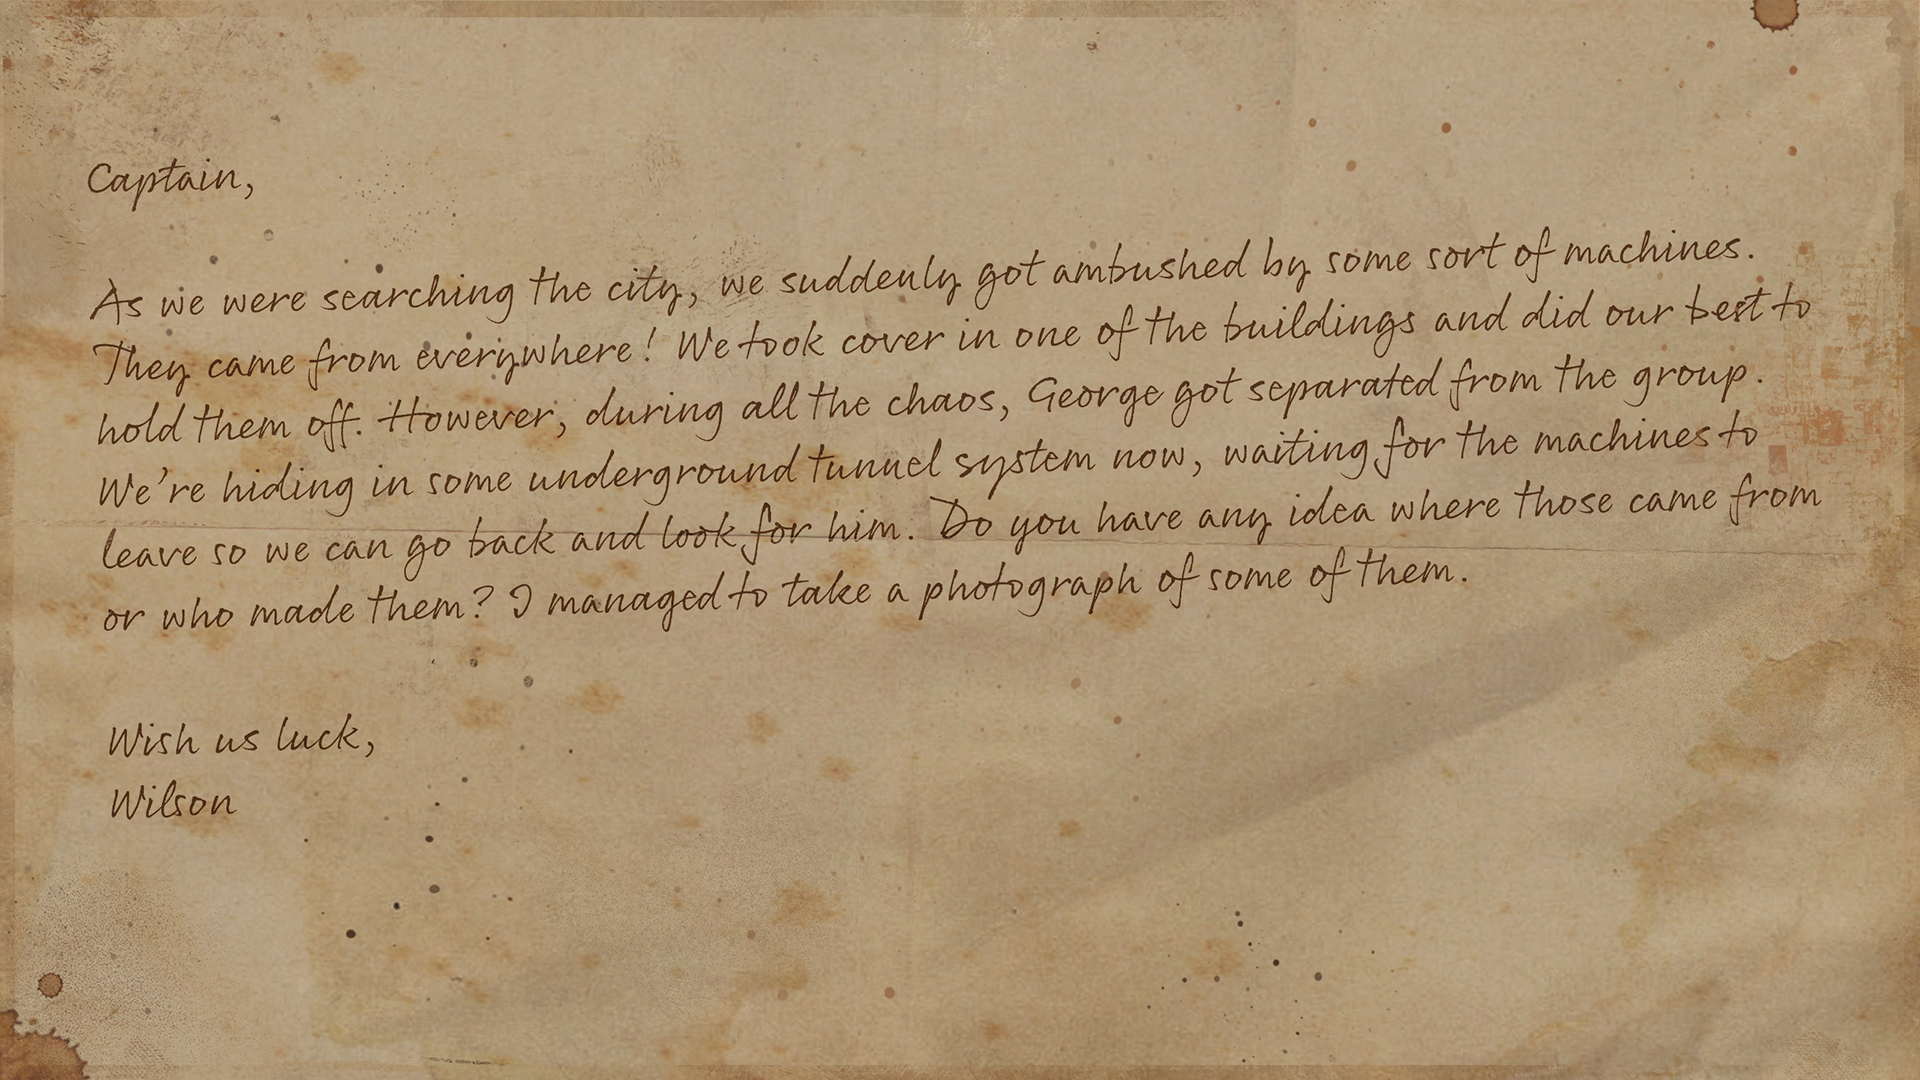 Captain,
As we were searching the city, we suddenly got ambushed by some sort of machines.
They came from everywhere! We took cover in one of the buildings and did our best to
hold them off. However, during all the chaos, George got separated from the group.
We're hiding in some underground tunnel system now, waiting for the machines to
leave so we can go back and look for him. Do you have any idea where those came from
or who made them? I managed to take a photograph of some of them.
Wish us luck,
Wilson